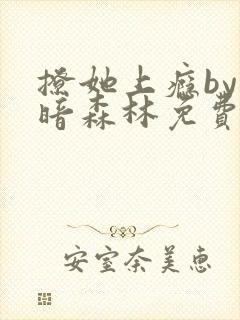 撩她上癮by
暗森林免費
安室奈美惠